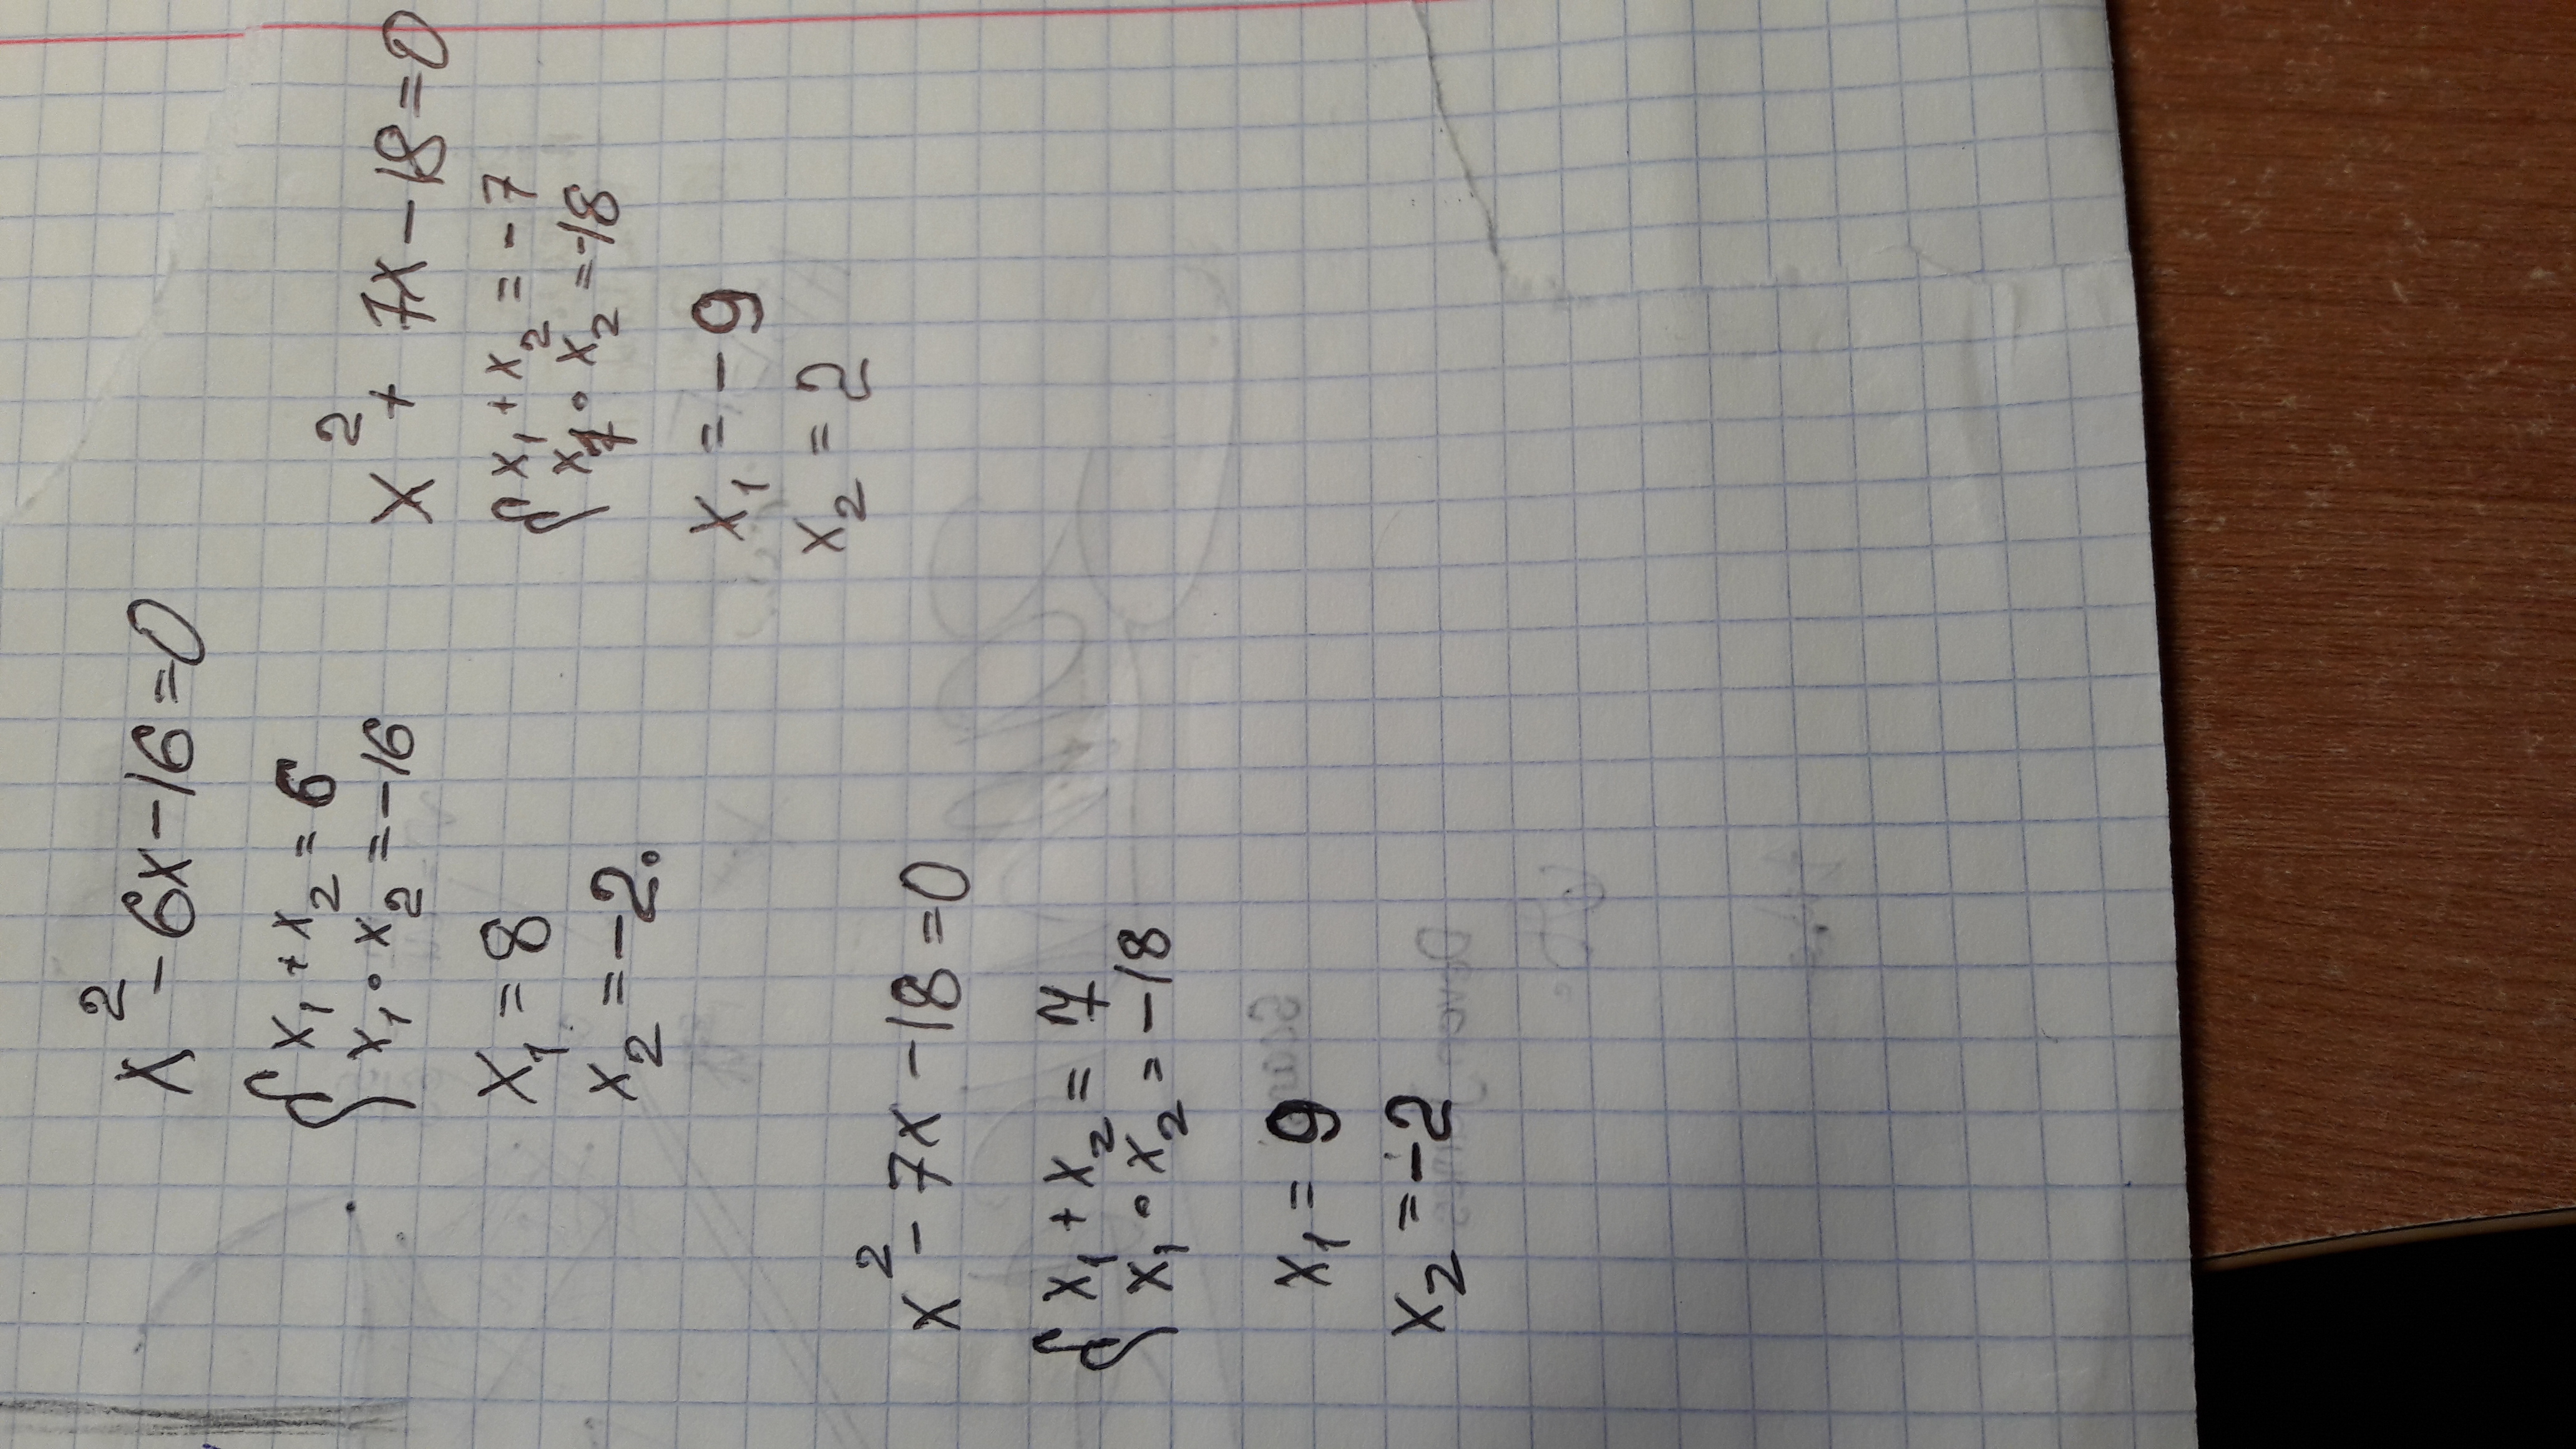 x² - 6x - 16 = 0
{ x₁ + x₂ = 6
x₁ • x₂ = -16
x₁ = 8
x₂ = -2.
x² + 7x - 18 = 0
{ x₁ + x₂ = -7
x₁ • x₂ = -18
x₁ = -9
x₂ = 2
x² - 7x - 18 = 0
{ x₁ + x₂ = 7
x₁ • x₂ = -18
x₁ = 9
x₂ = -2